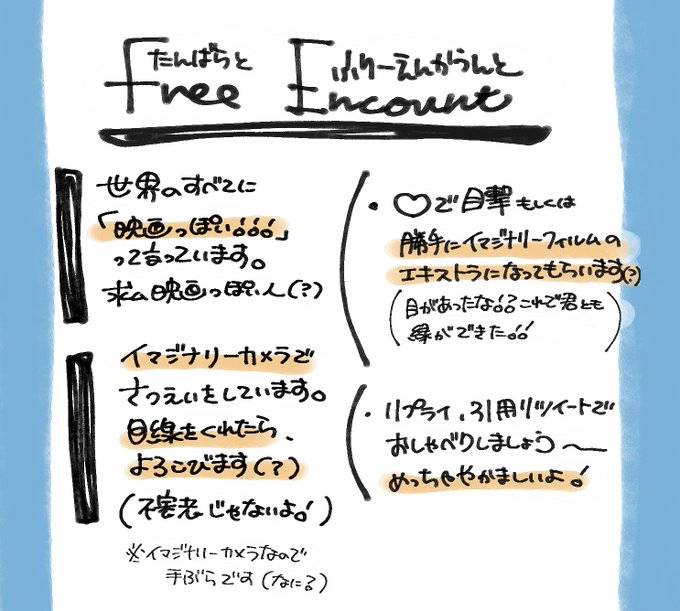 たんばらと ふりーえんかうんと
Free Encount
世界のすべてに
「映画っぽい!!!」
って言っています。
求ム映画っぽい人(?)
イマジナリーカメラで
さつえいをしています。
目線をくれたら、
よろこびます(?)
(不審者じゃないよ!)
※イマジナリーカメラなので
手ぶらです(なに?)
・♡で目撃もしくは
勝手にイマジナリーフィルムの
エキストラになってもらいます(?)
(目があったな!?これで君とも
縁ができた!!)
・リプライ、引用リツイートで
おしゃべりしましょう〜
めっちゃやかましいよ!